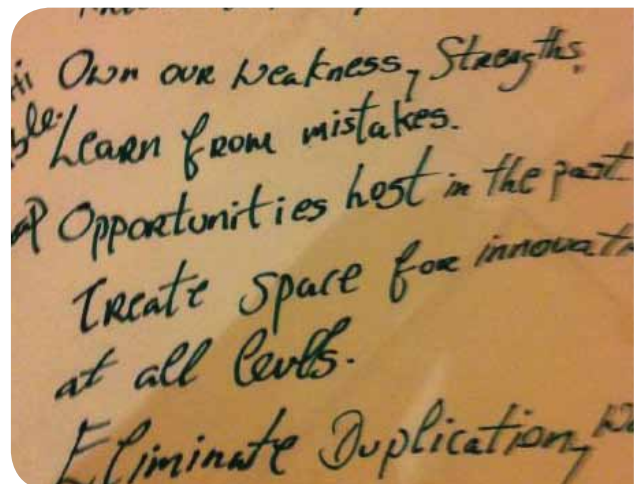 Own our weakness, Strengths.
Learn from mistakes.
Opportunities lost in the past
Create space for innovati
at all levels.
Eliminate Duplication,